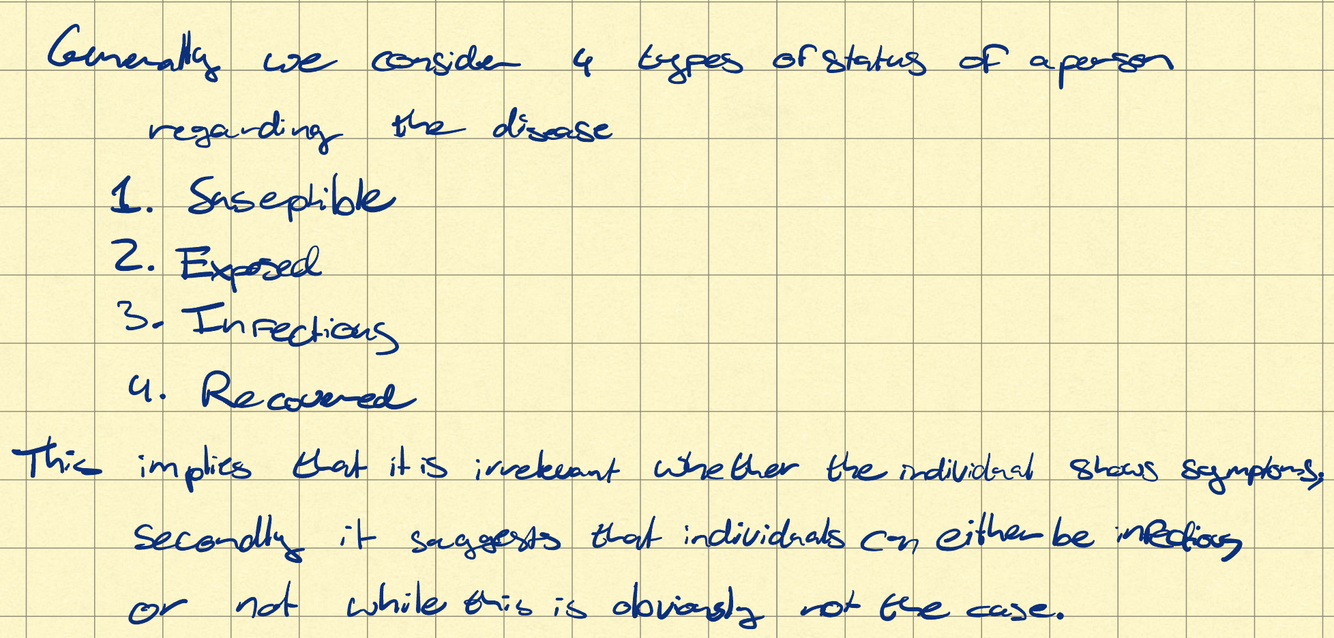 Generally we consider 4 types of status of a person
regarding the disease
1. Suseptible
2. Exposed
3. Infectious
4. Recovered
This implies that it is irrelevant whether the individual shows symptoms,
secondly it suggests that individuals can either be infectious
or not while this is obviously not the case.